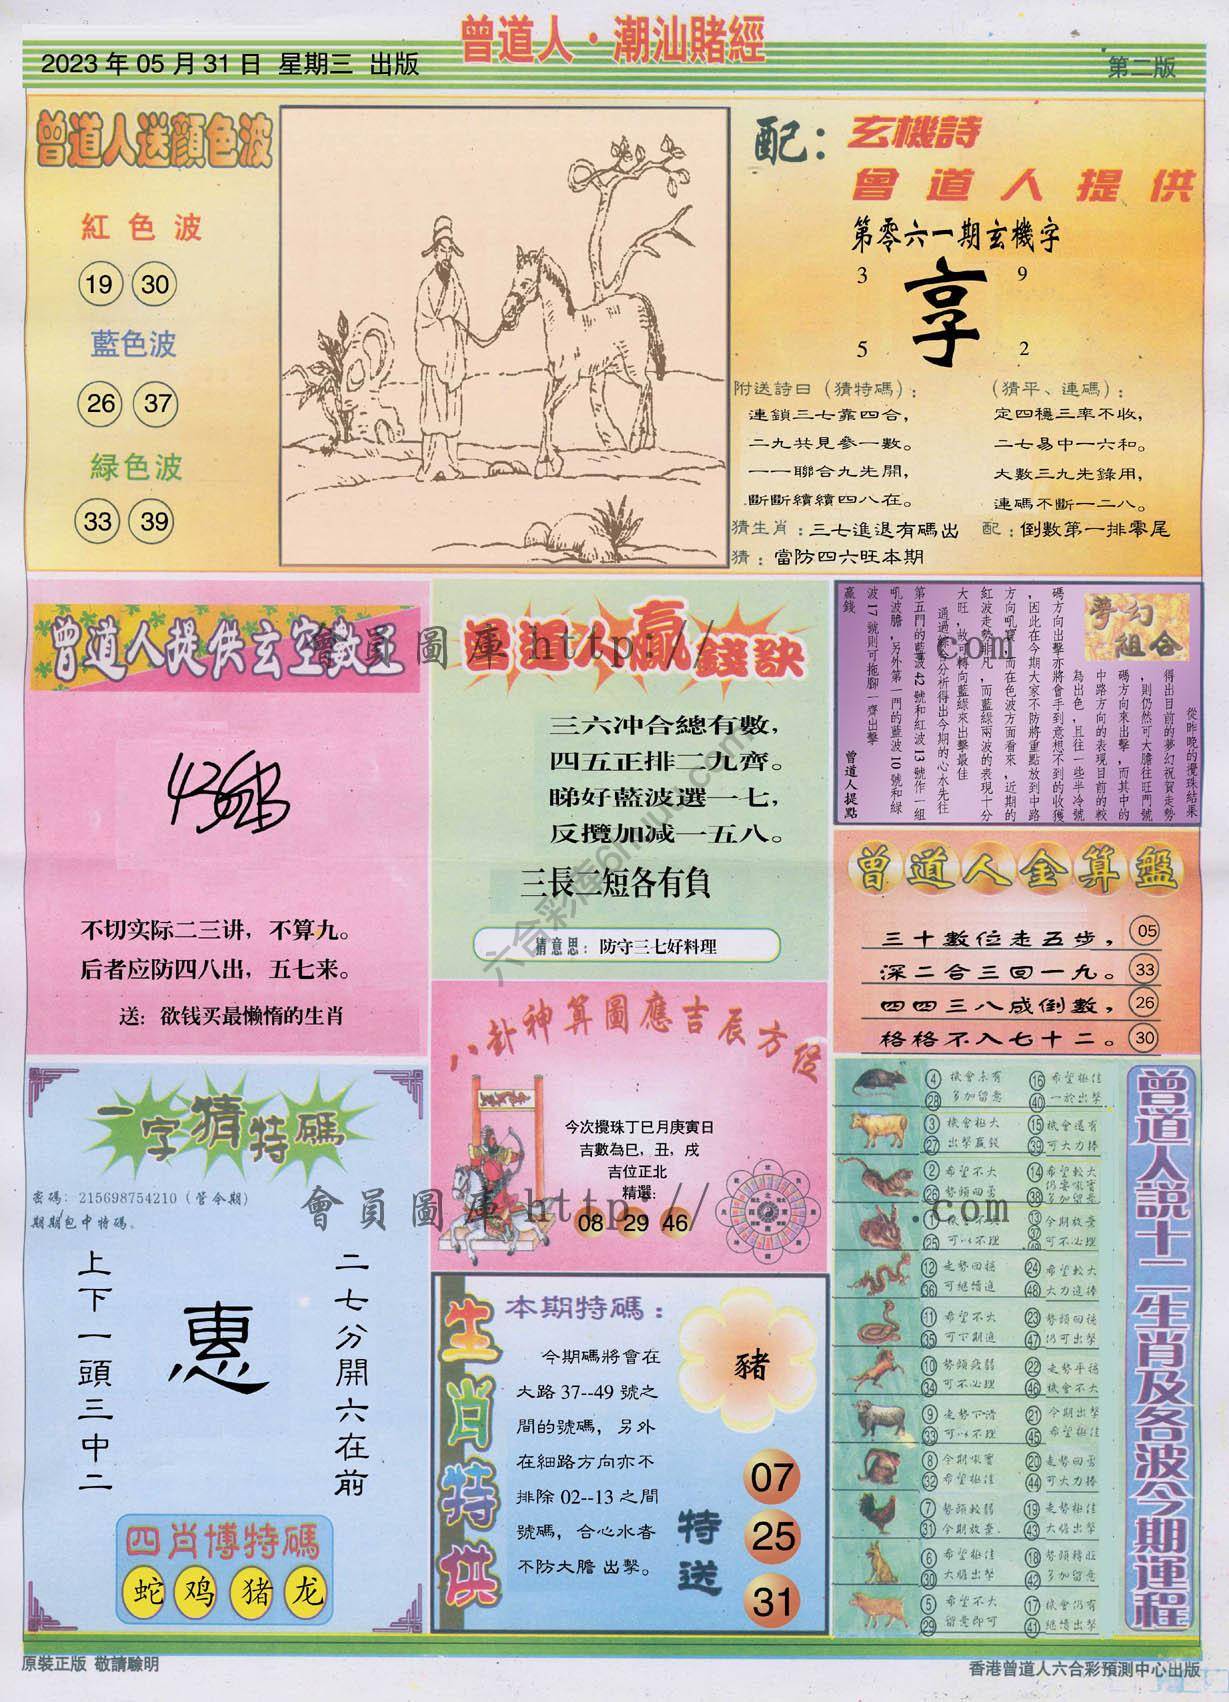 曾道人·潮汕賭經
2023 年 05 月 31 日 星期三 出版
第二版
曾道人送顏色波
紅色波
19 30
藍色波
26 37
緑色波
33 39
配：玄機詩
曾道人提供
第零六一期玄機字
3 9
享
5 2
附送詩曰（猜特碼）：
連鎖三七靠四合，
二九共見參一數。
一一聯合九先開，
斷斷續續四八在。
猜生肖：三七進退有碼出
猜：當防四六旺本期
（猜平、連碼）：
定四穩三率不收，
二七易中一六和。
大數三九先錄用，
連碼不斷一二八。
配：倒數第一排零尾
曾道人提供玄空數王
不切实际二三讲，不算九。
后者应防四八出，五七来。
送：欲钱买最懒惰的生肖
曾道人贏錢訣
三六冲合總有數，
四五正排二九齊。
睇好藍波選一七，
反攬加减一五八。
三長二短各有負
猜意思：防守三七好料理
夢幻組合
從昨晚的攪珠結果
得出目前的夢幻祝賀走勢
，則仍然可大膽往旺門號
碼方向來出擊，而其中的
中路方向的表現目前的較
為出色，且往一些半冷號
碼方向出擊亦將會手到意想不到的收獲
，因此在今期大家不防將重點放到中路
方向吼寶，而在色波方面看來，近期的
紅波走勢非凡，而藍綠兩波的表現十分
大旺，故可轉向藍綠來出擊最佳
通過綜合分析得出今期的心水先往
第五門的藍波 42 號和紅波 13 號作一組
吼波膽，另外第一門的藍波 10 號和綠
波 17 號則可拖腳一齊出擊
贏錢
曾道人提點
曾道人金算盤
三十數位走五步， 05
深二合三回一九。 33
四四三八成倒數， 26
格格不入七十二。 30
一字猜特碼
密碼：215698754210（管今期）
期期包中特碼。
二七分開六在前
惠
上下一頭三中二
四肖博特碼
蛇 鸡 猪 龙
八卦神算圖應吉辰方位
今次攪珠丁巳月庚寅日
吉數為巳，丑，戌
吉位正北
精選：
08 29 46
生肖特供
本期特碼：
今期碼將會在
大路 37--49 號之
間的號碼，另外
在細路方向亦不
排除 02--13 之間
號碼，合心水者
不防大膽 出擊。
豬
特送
07
25
31
曾道人説十二生肖及各波今期運程
4 機會未有 16 希望極佳
28 多加留意 40 一於出擊
3 機會極大 15 機會還有
27 出擊贏錢 39 可大力捧
2 希望不大 14 希望較大
26 勢頭回勇 38 多加留意
13 今期放棄
25 可以不理 可不必理
12 走勢回穩 24 希望較大
36 可繼續進 48 大力進捧
11 希望不大 23 勢頭回穩
35 可下期進 47 仍可出擊
10 勢頭疲弱 22 走勢平穩
34 可不必理 46 機會不大
9 走勢下滑 21 今期出擊
33 可以不理 45 希望極佳
8 今期吼實 20 走勢回勇
32 希望極佳 44 可大力捧
7 勢頭較弱 19 走勢極佳
31 今期放棄 43 大膽出擊
6 希望極佳 18 勢頭轉旺
30 大膽出擊 42 多加留意
5 希望不大 17 機會仍有
29 留意即可 41 繼續出擊
會員圖庫 http:// .com
會員圖庫 http:// .com
六合彩库6huu.com
原裝正版 敬請驗明
香港曾道人六合彩預測中心出版